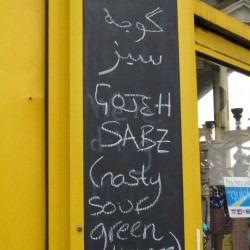 گوجه
سبز
GOJEH
SABZ
(nasty
sour
green